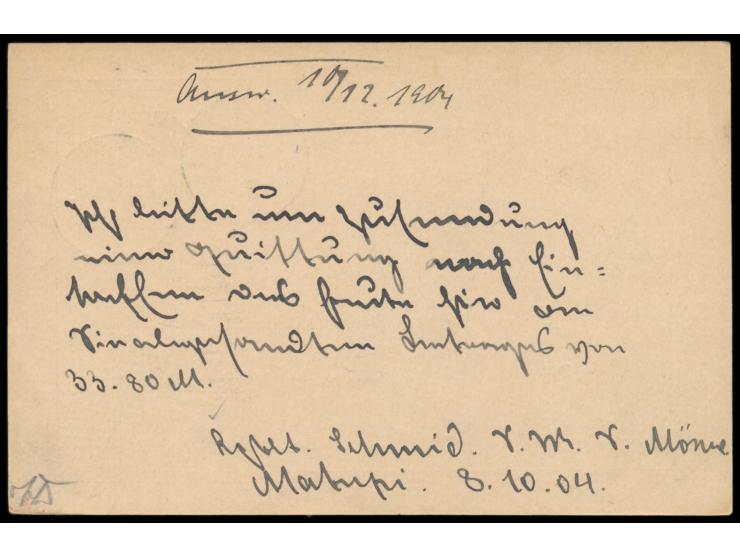 Answ. 10/12. 1904
Ich bitte um Zusendung
einer Quittung nach Ein=
treffen des heute hier an
Sie abgesandten Betrages von
33.80 M.
Schmid. S. M. S. Möwe
Matupi. 8.10.04.